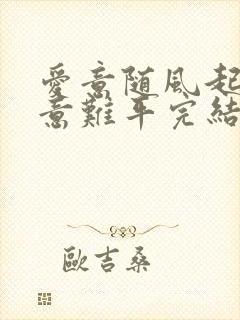 愛意随风起
意難平完結
歐吉桑